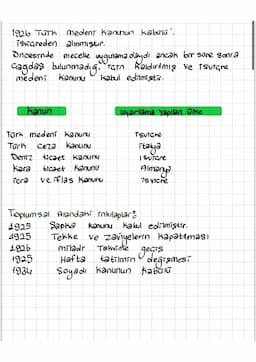 1926 Türk medeni kanunun kabulü:
İsviçreden alınmıştır.
Öncesinde mecelle uygulamadaydı ancak bir süre sonra
çağdaş bulunmadığı için kaldırılmış ve İsviçre
medeni kanunu kabul edilmiştir.
Kanun
Uyarlama Yapılan ülke
Türk medeni kanunu İsviçre
Türk ceza kanunu İtalya
Deniz ticaet kanunu
Kara ticaet kanunu Almanya
İcra ve iflas kanunu İsviçre
Toplumsal Alandaki inkılaplar:
1925 Şapka kanunu kabul edilmiştir.
1925 Tekke ve zaviyelerin kapatılması
1926 miladi Takvime geçiş
1925 Hafta tatilinin değişmesi
1934 Soyadı kanunun kabulü